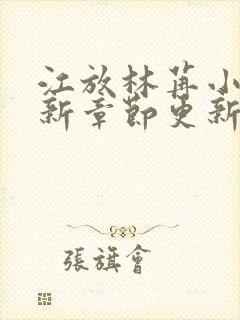 江放林苒小
新章節更新
張旗會